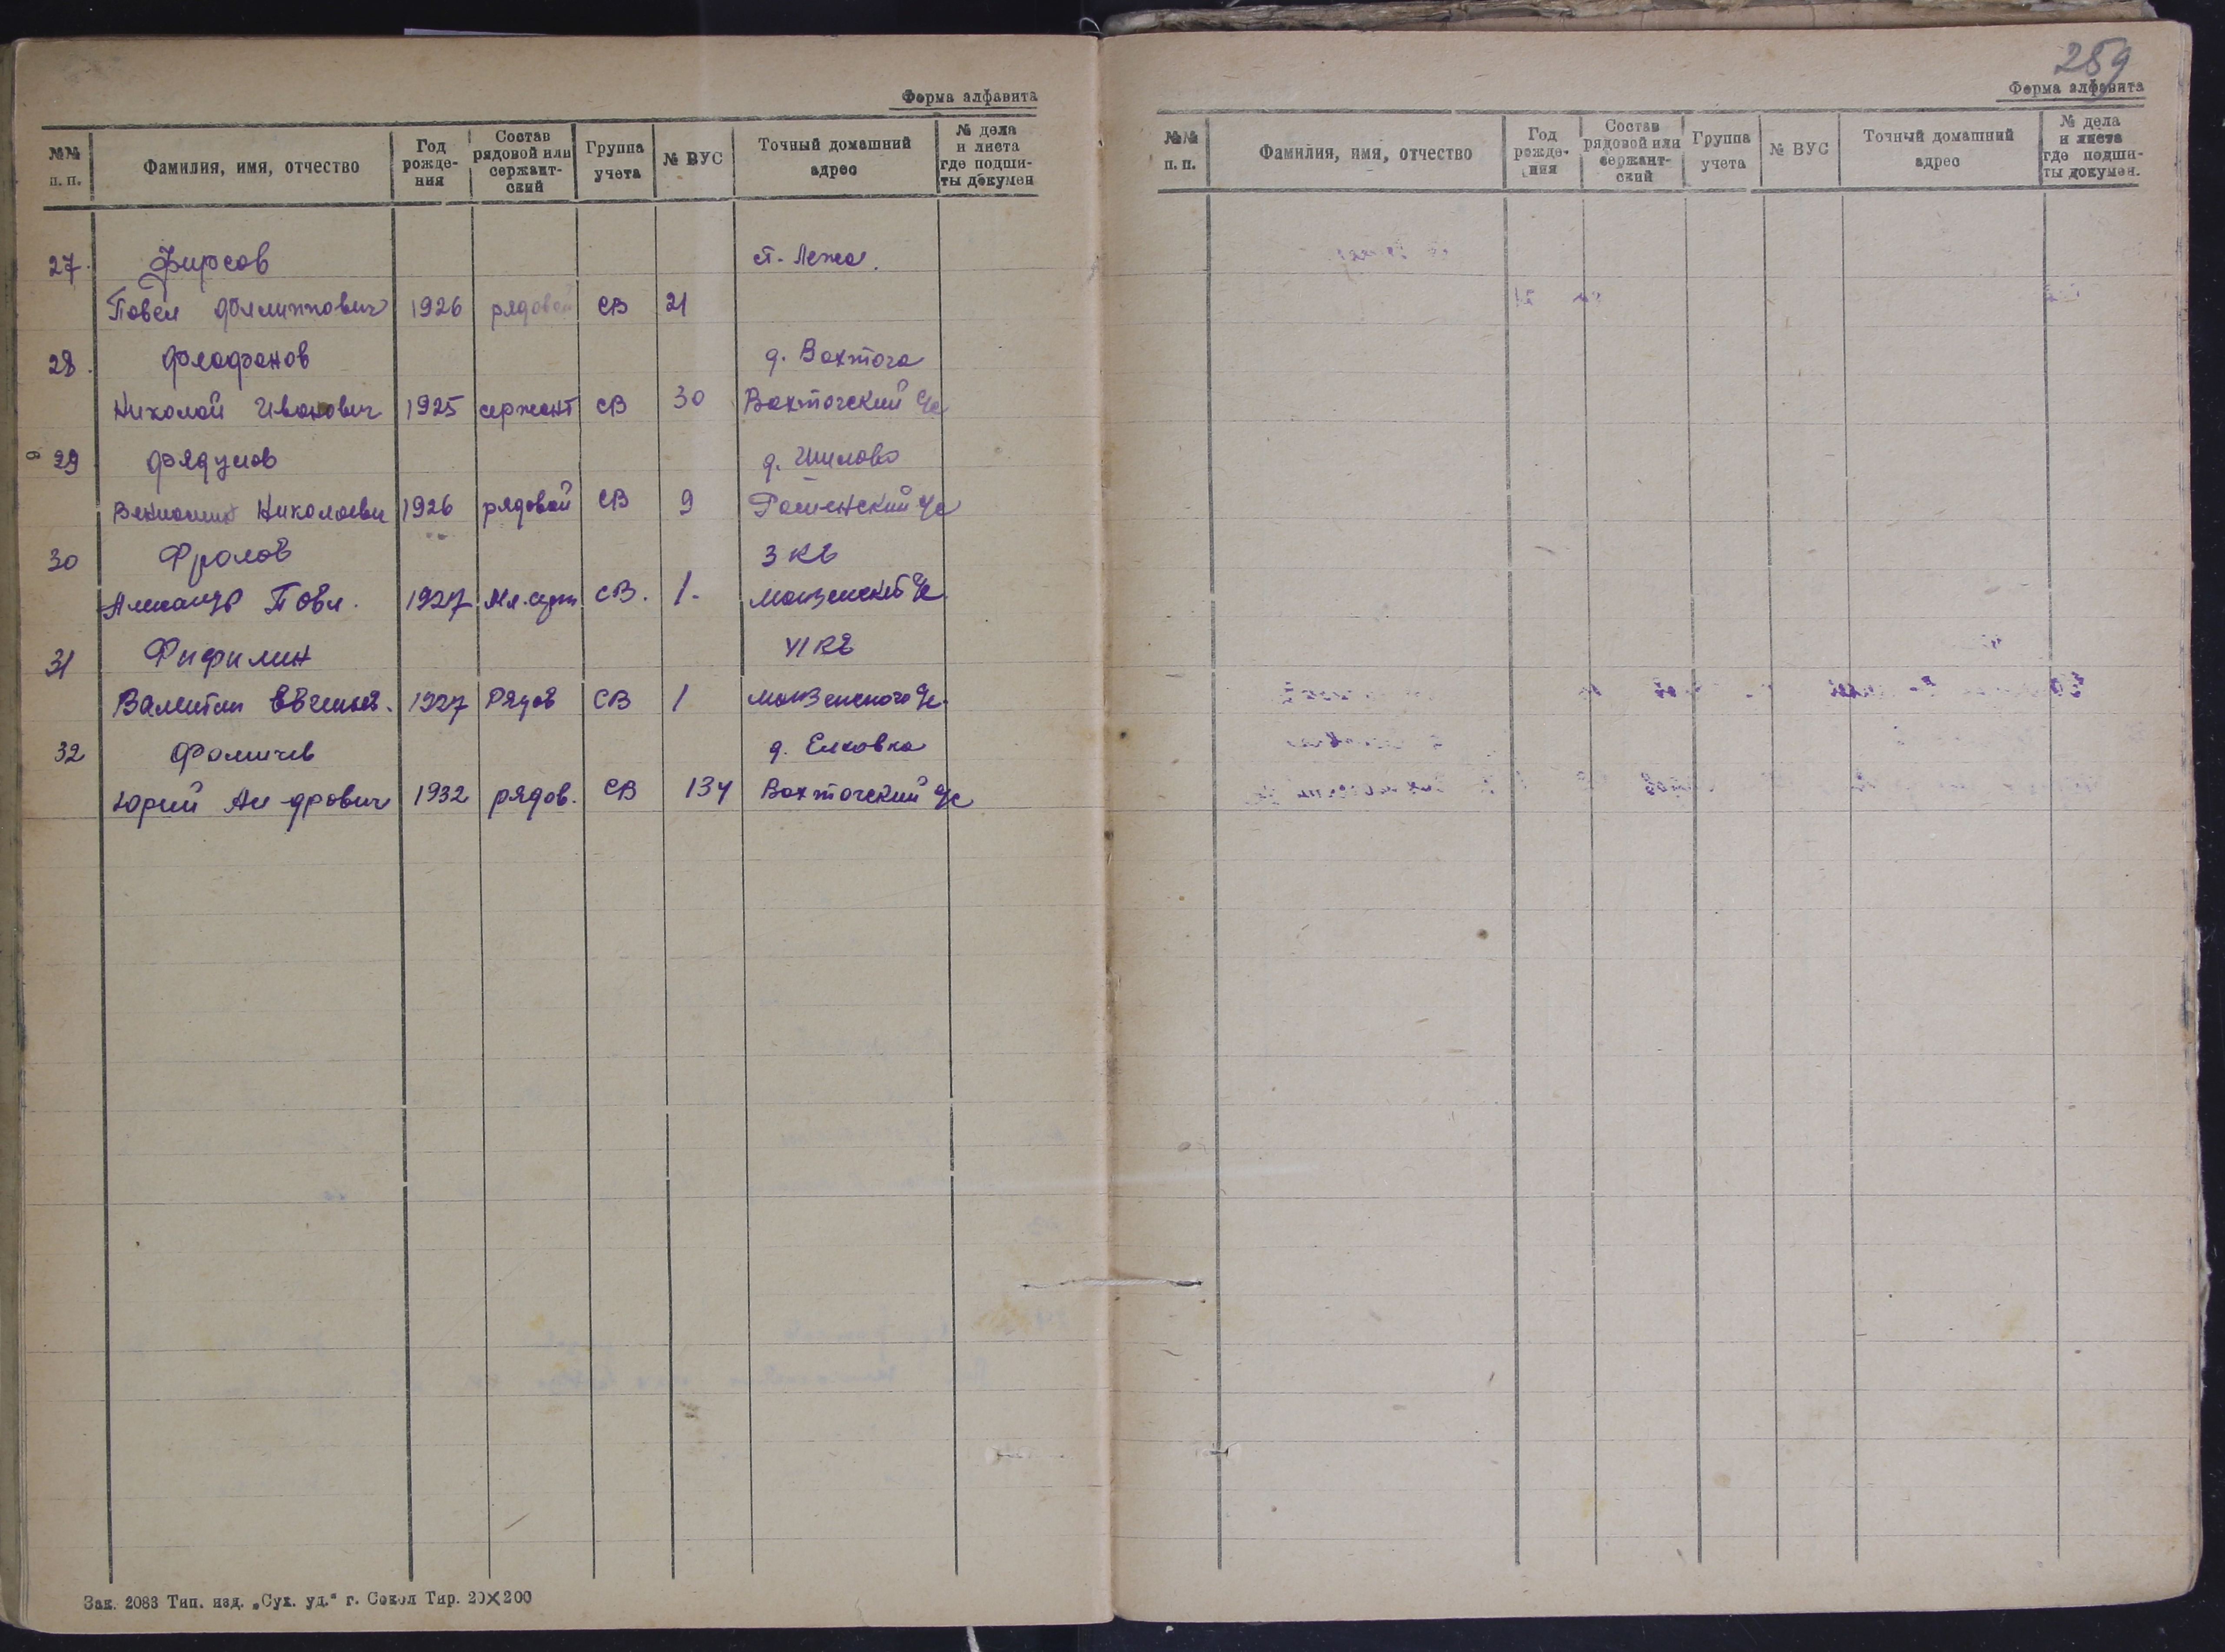 Форма алфавита
№№ п. п. Фамилия, имя, отчество Год рожде-ния Состав рядовой или сержант-ский Группа учета № ВУС Точный домашний адрес № дела и листа где подши-ты докумен
27. Фирсов ст. Лежа.
Павел Филиппович 1926 рядовой СВ 21
28. Феофанов д. Вохтога
Николай Иванович 1925 сержант СВ 30 Вохтогский с/с
29 Фядулов д. Шилово
Вениамин Николаевич 1926 рядовой СВ 9 с/с
30 Фролов 3 кв
Александр Павл. 1927 Мл. серж СВ. 1. Монзенский с/с
31 Фифилин VI кв
Валентин 1927 Рядов СВ 1 Монзенского с/с.
32 Фомичев д. Елховка
Юрий Ан-дрович 1932 рядов. СВ 134 Вохтогский с/с
Зак. 2083 Тип. изд. „Сух. уд.“ г. Сокол Тир. 20×200
259
Форма алфавита
№№ п. п. Фамилия, имя, отчество Год рожде-ния Состав рядовой или сержант-ский Группа учета № ВУС Точный домашний адрес № дела и листа где подши-ты докумен.